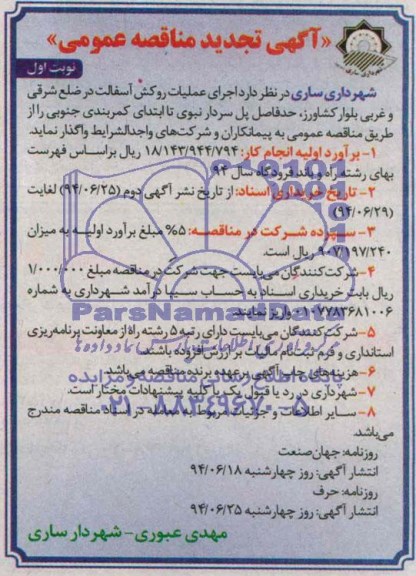 «آگهی تجدید مناقصه عمومی»
شهرداری ساری
نوبت اول
شهرداری ساری در نظر دارد اجرای عملیات روکش آسفالت در ضلع شرقی
و غربی بلوار کشاورز، حدفاصل پل سردار نبوی تا ابتدای کمربندی جنوبی را از
طریق مناقصه عمومی به پیمانکاران و شرکت‌های واجدالشرایط واگذار نماید.
۱- برآورد اولیه انجام کار: ۱۸/۱۴۳/۹۴۴/۷۹۴ ریال براساس فهرست
بهای رشته راه و باند فرودگاه سال ۹۴
۲- تاریخ خریداری اسناد: از تاریخ نشر آگهی دوم (۹۴/۰۶/۲۵) لغایت
(۹۴/۰۶/۲۹)
۳- سپرده شرکت در مناقصه: ۵% مبلغ برآورد اولیه به میزان
۹۰۷/۱۹۷/۲۴۰ ریال است.
۴- شرکت‌کنندگان می‌بایست جهت شرکت در مناقصه مبلغ ۱/۰۰۰/۰۰۰
ریال بابت خریداری اسناد به حساب سیبا درآمد شهرداری به شماره
۰۱۰۷۷۸۳۶۸۱۰۰۶ واریز نمایند.
۵- شرکت‌کنندگان می‌بایست دارای رتبه ۵ رشته راه از معاونت برنامه‌ریزی
استانداری و فرم ثبت‌نام مالیات بر ارزش افزوده باشند.
۶- هزینه‌های چاپ آگهی برعهده برنده مناقصه می‌باشد.
۷- شهرداری در رد یا قبول یک یا کلیه پیشنهادات مختار است.
۸- سایر اطلاعات و جزئیات مربوط به معامله در اسناد مناقصه مندرج
می‌باشد.
روزنامه: جهان صنعت
انتشار آگهی: روز چهارشنبه ۹۴/۰۶/۱۸
روزنامه: حرف
انتشار آگهی: روز چهارشنبه ۹۴/۰۶/۲۵
مهدی عبوری - شهردار ساری
ParsNamadData
پایگاه اطلاع رسانی مناقصه و مزایده
۰۲۱-۸۸۳۴۹۶۷۰-۵